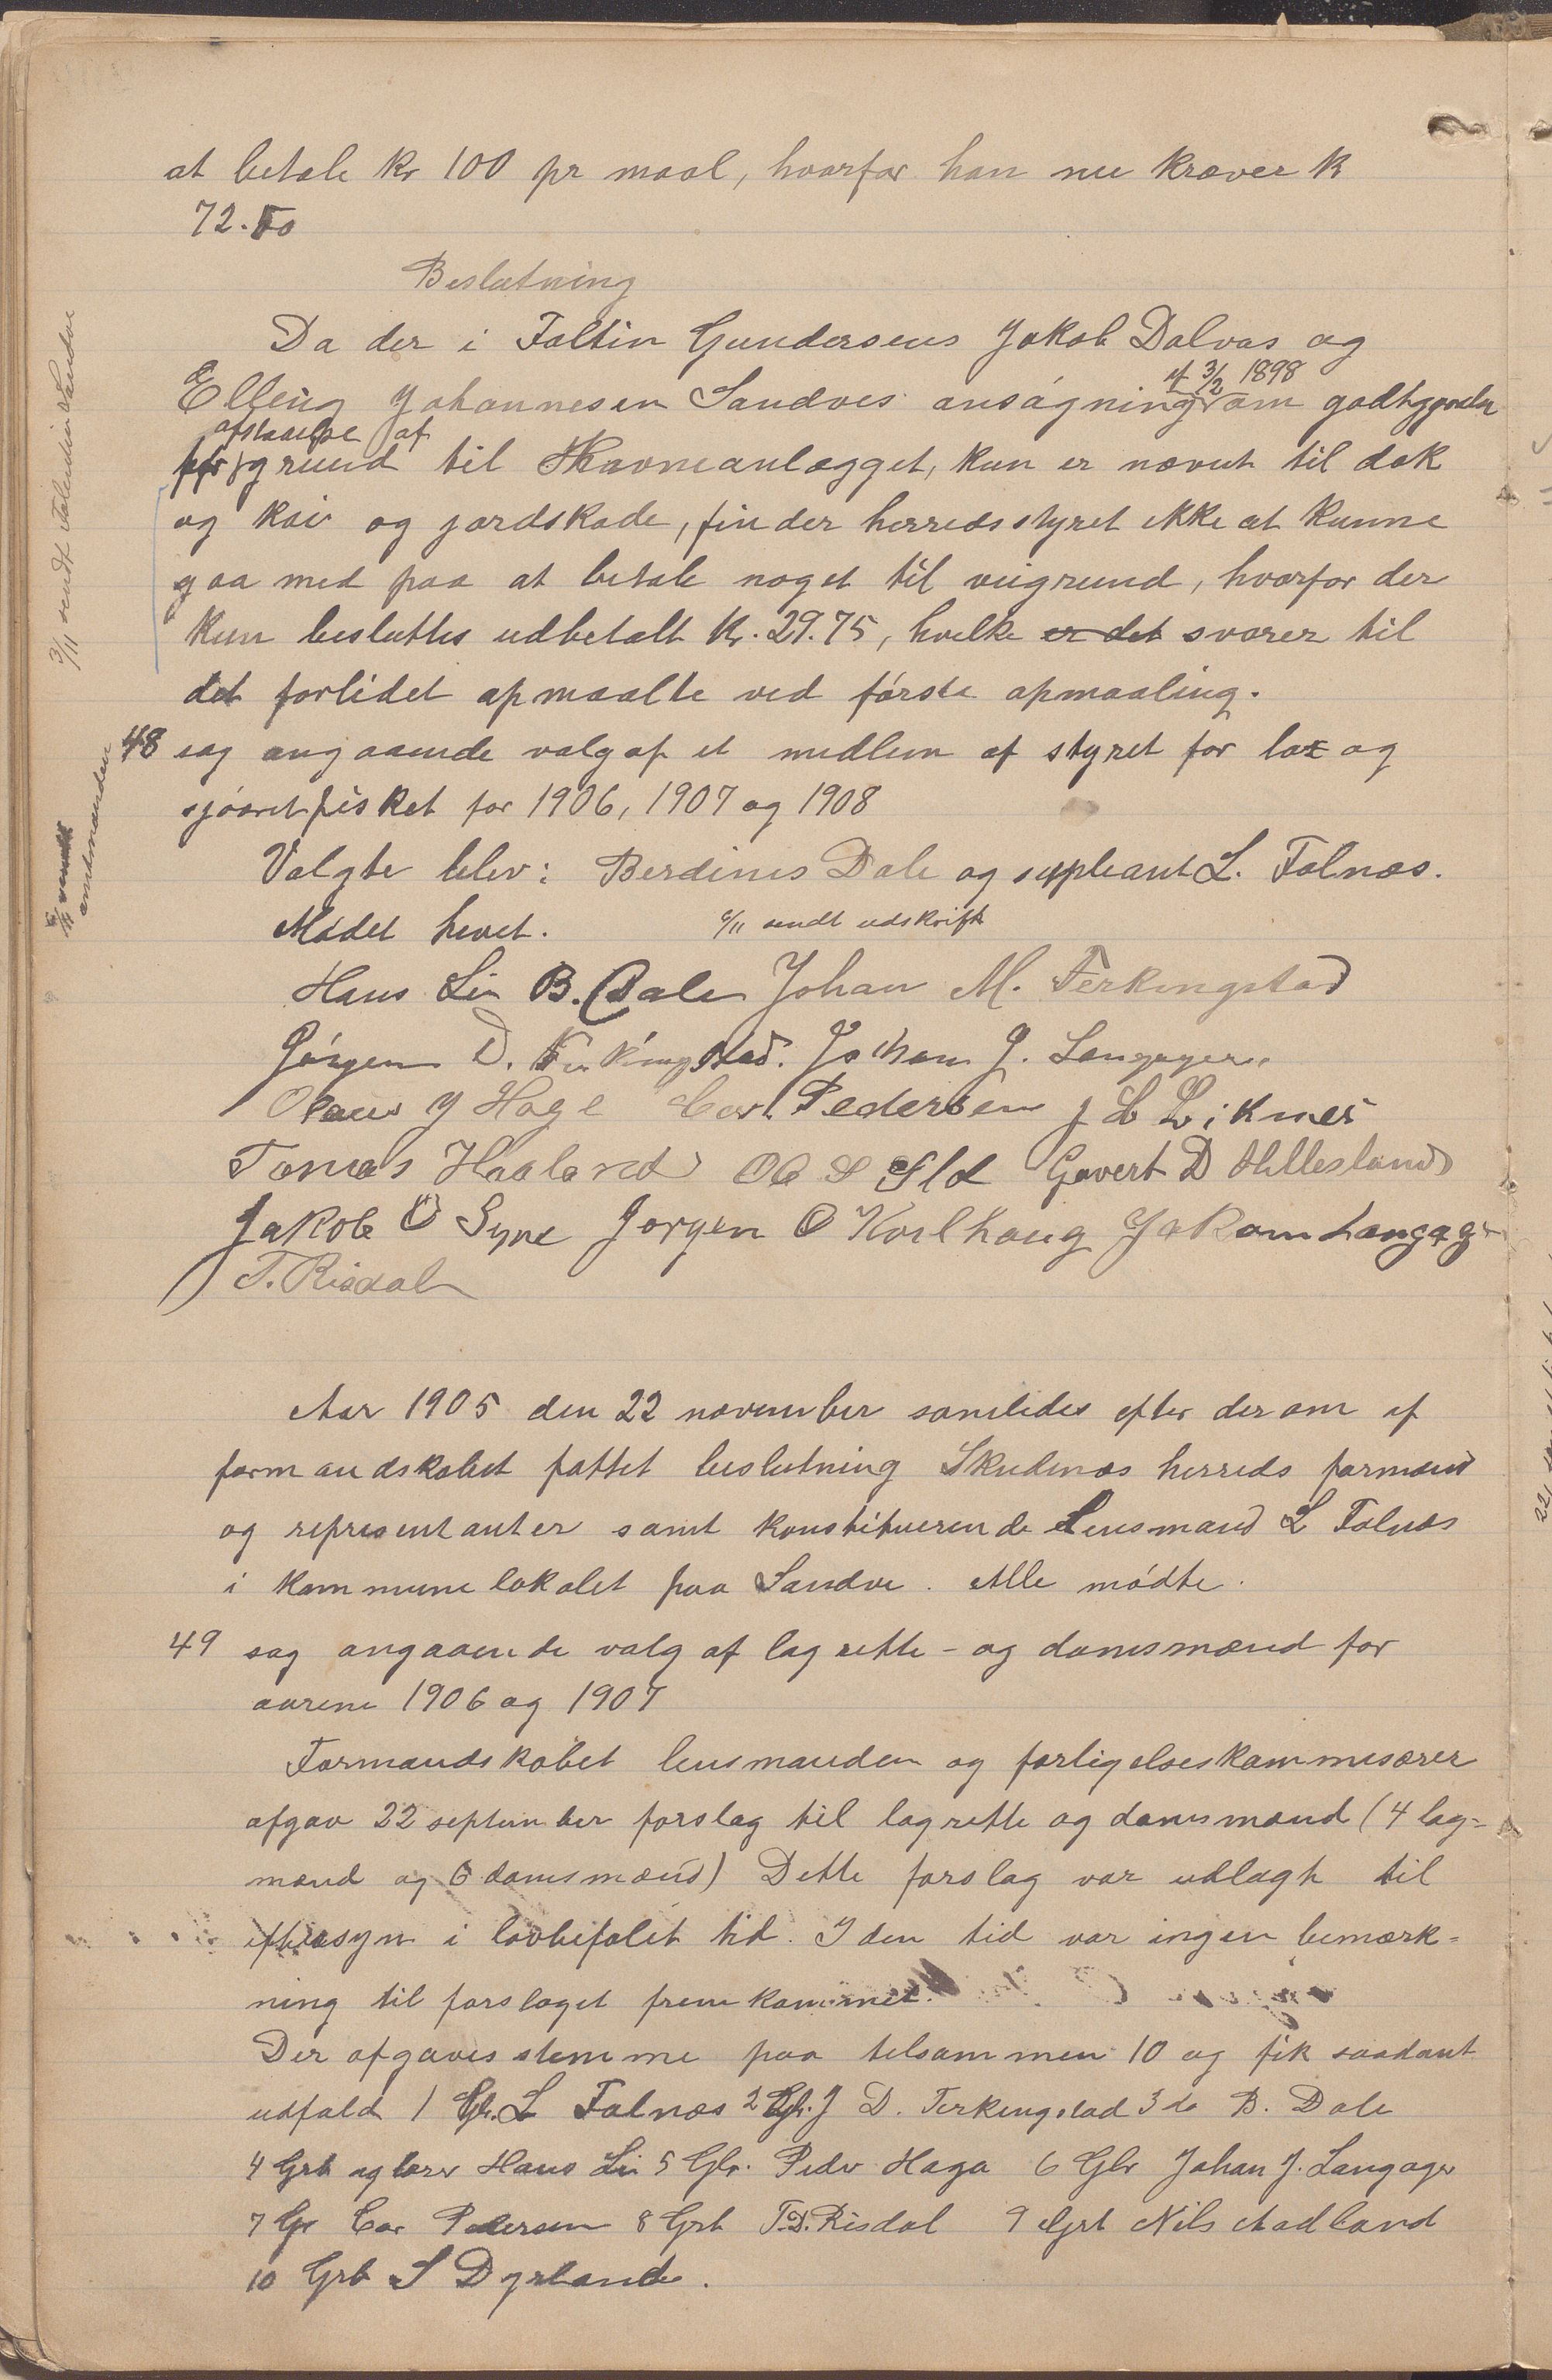 at betale kr 100 pr maal, hvorfor han nu kræver k
72.50
Beslutning
Da der i Faltin Gundersens Jakob Dalvas og
Elling Johannesen Sandves ansøgning af 3/2 1898 om godtgjørelse
for afstaaelse af grund til Havneanlægget, kun er nævnt til dok
og kai og jordskade, finder herredsstyret ikke at kunne
gaa med paa at betale noget til veigrund, hvorfor der
kun besluttes udbetalt kr. 29.75, hvilke er det svarer til
det forlidet opmaalte ved første opmaaling.
3/11 sendt Sandve
48 sag angaaende valg af et medlem af styret for lax og
sjøøretfisket for 1906, 1907 og 1908
Valgte blev: Berdines Dale og supleant L. Falnæs.
amtmanden
Mødet hevet. 6/11 sendt udskrift
Hans Li B. Dale Johan M. Ferkingstad
Jørgen D. Ferkingstad. Johan J. Langager.
Olaus J Hage Carl Pedersen J L Liknes
Tomas Haaland Ole S Eld Govert D Hillesland
Jakob O Syre Jørgen O Kvilhaug Jakom Langager
T. Risdal
Aar 1905 den 22 november samledes efter derom af
formandskabet fattet beslutning Skudenæs herreds formænd
og representanter samt konstituerende Lensmand L Falnæs
i kommunelokalet paa Sandve. Alle mødte.
49 sag angaaende valg af lagrette- og domsmænd for
aarene 1906 og 1907
Formandskabet lensmanden og forligelseskommisærer
afgav 22 september forslag til lagrette og domsmænd (4 lag=
mænd og 6 domsmænd) Dette forslag var udlagt til
eftersyn i lovbefalet tid. I den tid var ingen bemærk=
ning til forslaget fremkommet.
Der afgaves stemme paa tilsammen 10 og fik saadant
udfald 1 Gbr. L Falnæs 2 Gbr. J D. Ferkingstad 3 do B. Dale
4 Grb og lærer Hans Li 5 Gbr. Peder Haga 6 Gbr Johan J. Langager
7 Gr Car Pedersen 8 Grb T.D. Risdal 9 Grb Nils Aadland
10 Grb S Dyrland.